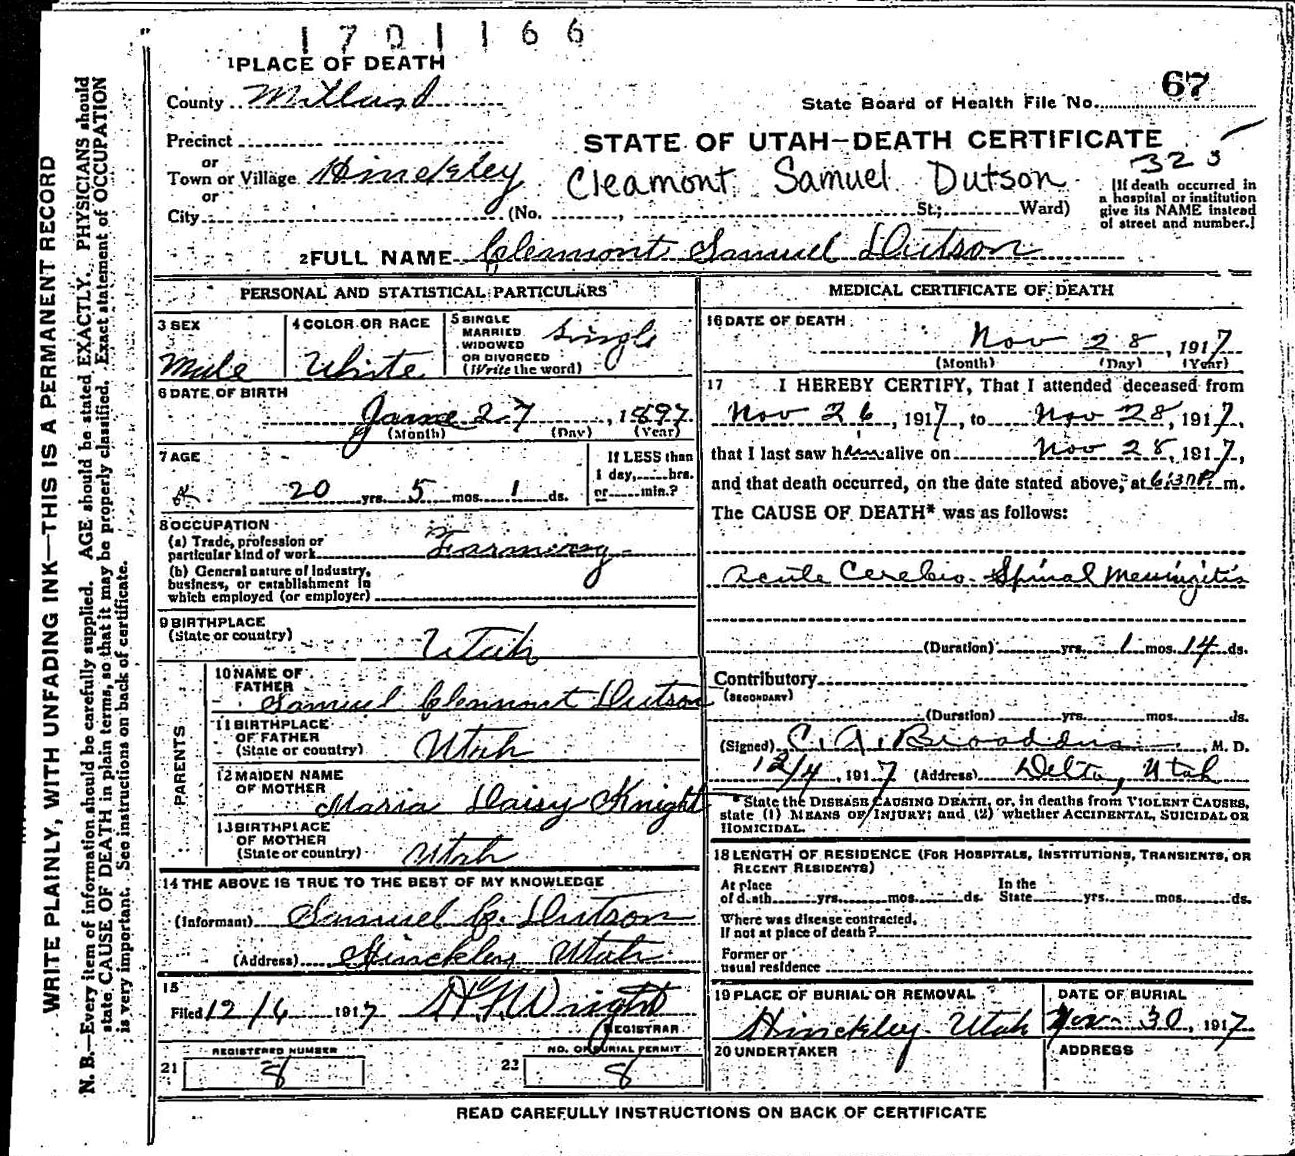 1701166
1 PLACE OF DEATH
County Millard
State Board of Health File No. 67
Precinct
STATE OF UTAH—DEATH CERTIFICATE
or
Town or Village Hinckley
Cleamont Samuel Dutson
325
or
City (No. , St; Ward)
[If death occurred in
a hospital or institution
give its NAME instead
of street and number.]
2 FULL NAME Clemont Samuel Dutson
PERSONAL AND STATISTICAL PARTICULARS
3 SEX
Male
4 COLOR OR RACE
White
5 SINGLE
MARRIED
WIDOWED
OR DIVORCED
(Write the word)
Single
6 DATE OF BIRTH
June 27, 1897
(Month) (Day) (Year)
7 AGE
20 yrs. 5 mos. 1 ds.
If LESS than
1 day, hrs.
or min.?
8 OCCUPATION
(a) Trade, profession or
particular kind of work Farming
(b) General nature of Industry,
business, or establishment in
which employed (or employer)
9 BIRTHPLACE
(State or country)
Utah
PARENTS
10 NAME OF
FATHER
Samuel Clemont Dutson
11 BIRTHPLACE
OF FATHER
(State or country)
Utah
12 MAIDEN NAME
OF MOTHER
Maria Daisy Knight
13 BIRTHPLACE
OF MOTHER
(State or country)
Utah
14 THE ABOVE IS TRUE TO THE BEST OF MY KNOWLEDGE
(Informant) Samuel C. Dutson
(Address) Hinckley Utah
15
Filed 12/6 1917 Wright
REGISTRAR
21
REGISTERED NUMBER
8
23
NO. OF BURIAL PERMIT
8
MEDICAL CERTIFICATE OF DEATH
16 DATE OF DEATH
Nov 28, 1917
(Month) (Day) (Year)
17 I HEREBY CERTIFY, That I attended deceased from
Nov 26, 1917, to Nov 28, 1917,
that I last saw him alive on Nov 28, 1917,
and that death occurred, on the date stated above, at 6:30P m.
The CAUSE OF DEATH* was as follows:
Acute Cerebro-Spinal Meningitis
(Duration) yrs. 1 mos. 14 ds.
Contributory
(SECONDARY)
(Duration) yrs. mos. ds.
(Signed) C. A. Broaddus, M. D.
12/4, 1917 (Address) Delta, Utah
*State the DISEASE CAUSING DEATH, or, in deaths from VIOLENT CAUSES,
state (1) MEANS OF INJURY; and (2) whether ACCIDENTAL, SUICIDAL OR
HOMICIDAL.
18 LENGTH OF RESIDENCE (FOR HOSPITALS, INSTITUTIONS, TRANSIENTS, OR
RECENT RESIDENTS)
At place
of death yrs. mos. ds.
In the
State yrs. mos. ds.
Where was disease contracted,
If not at place of death?
Former or
usual residence
19 PLACE OF BURIAL OR REMOVAL
Hinckley Utah
DATE OF BURIAL
Nov 30, 1917
20 UNDERTAKER
ADDRESS
READ CAREFULLY INSTRUCTIONS ON BACK OF CERTIFICATE
WRITE PLAINLY, WITH UNFADING INK—THIS IS A PERMANENT RECORD
N. B.—Every item of information should be carefully supplied. AGE should be stated EXACTLY. PHYSICIANS should
state CAUSE OF DEATH in plain terms, so that it may be properly classified. Exact statement of OCCUPATION
is very important. See instructions on back of certificate.